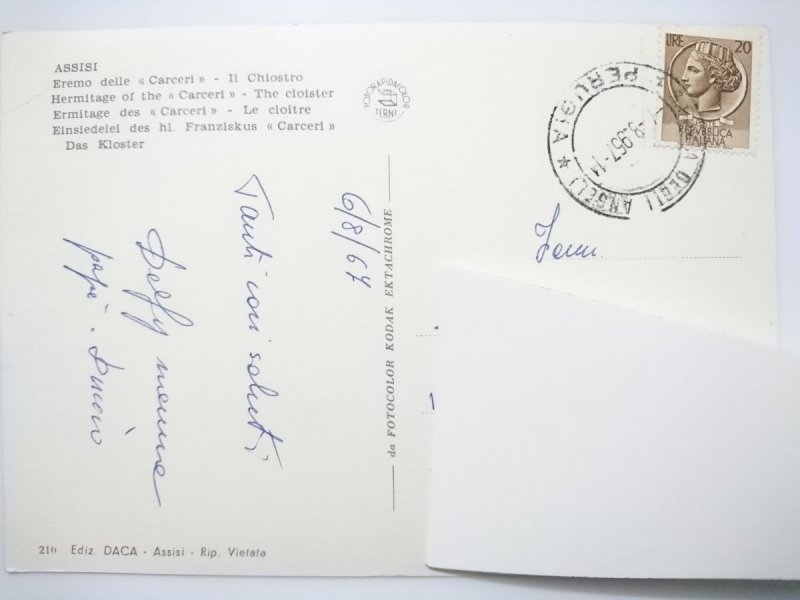 ASSISI
Eremo delle « Carceri » - Il Chiostro
Hermitage of the « Carceri » - The cloister
Ermitage des « Carceri » - Le cloître
Einsiedelei des hl. Franziskus « Carceri »
Das Kloster
FOTORAPIDACOLOR
TERNI
LIRE 20
POSTE
REPVBBLICA
ITALIANA
DEGLI ANGELI * PERUGIA
6/8/67
Tanti cari saluti
Delfy mamma
papà
Fam.
da FOTOCOLOR KODAK EKTACHROME
210 Ediz. DACA - Assisi - Rip. Vietata